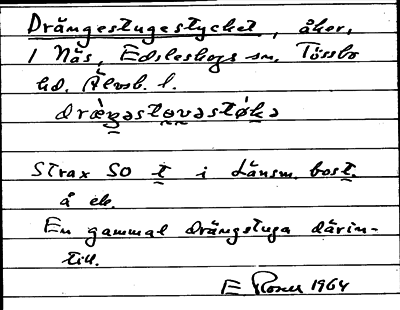 Drängestugestycket, åker,
1 Näs, Edsleskogs sn. Tössbo
hd. Älvsb. l.
dræ̀ŋəstɵvəstø̀kə
Strax SO t i Länsm. bost.
å ek.
En gammal drängstuga därin-
till.
E 1964